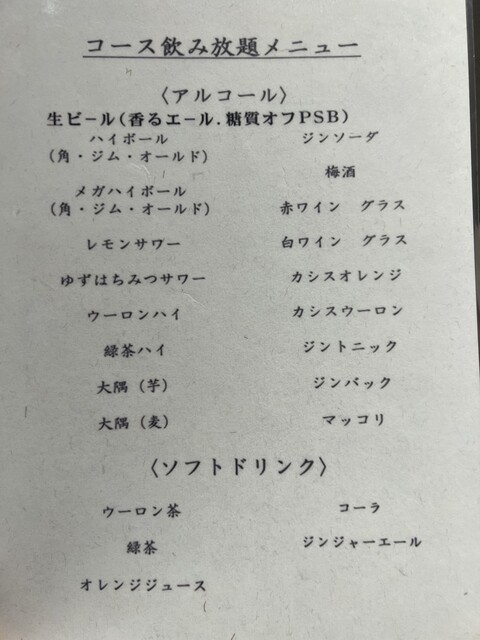 コース飲み放題メニュー
〈アルコール〉
生ビール(香るエール.糖質オフPSB)
ハイボール
(角・ジム・オールド)
メガハイボール
(角・ジム・オールド)
レモンサワー
ゆずはちみつサワー
ウーロンハイ
緑茶ハイ
大隅(芋)
大隅(麦)
ジンソーダ
梅酒
赤ワイン　グラス
白ワイン　グラス
カシスオレンジ
カシスウーロン
ジントニック
ジンバック
マッコリ
〈ソフトドリンク〉
ウーロン茶
緑茶
オレンジジュース
コーラ
ジンジャーエール